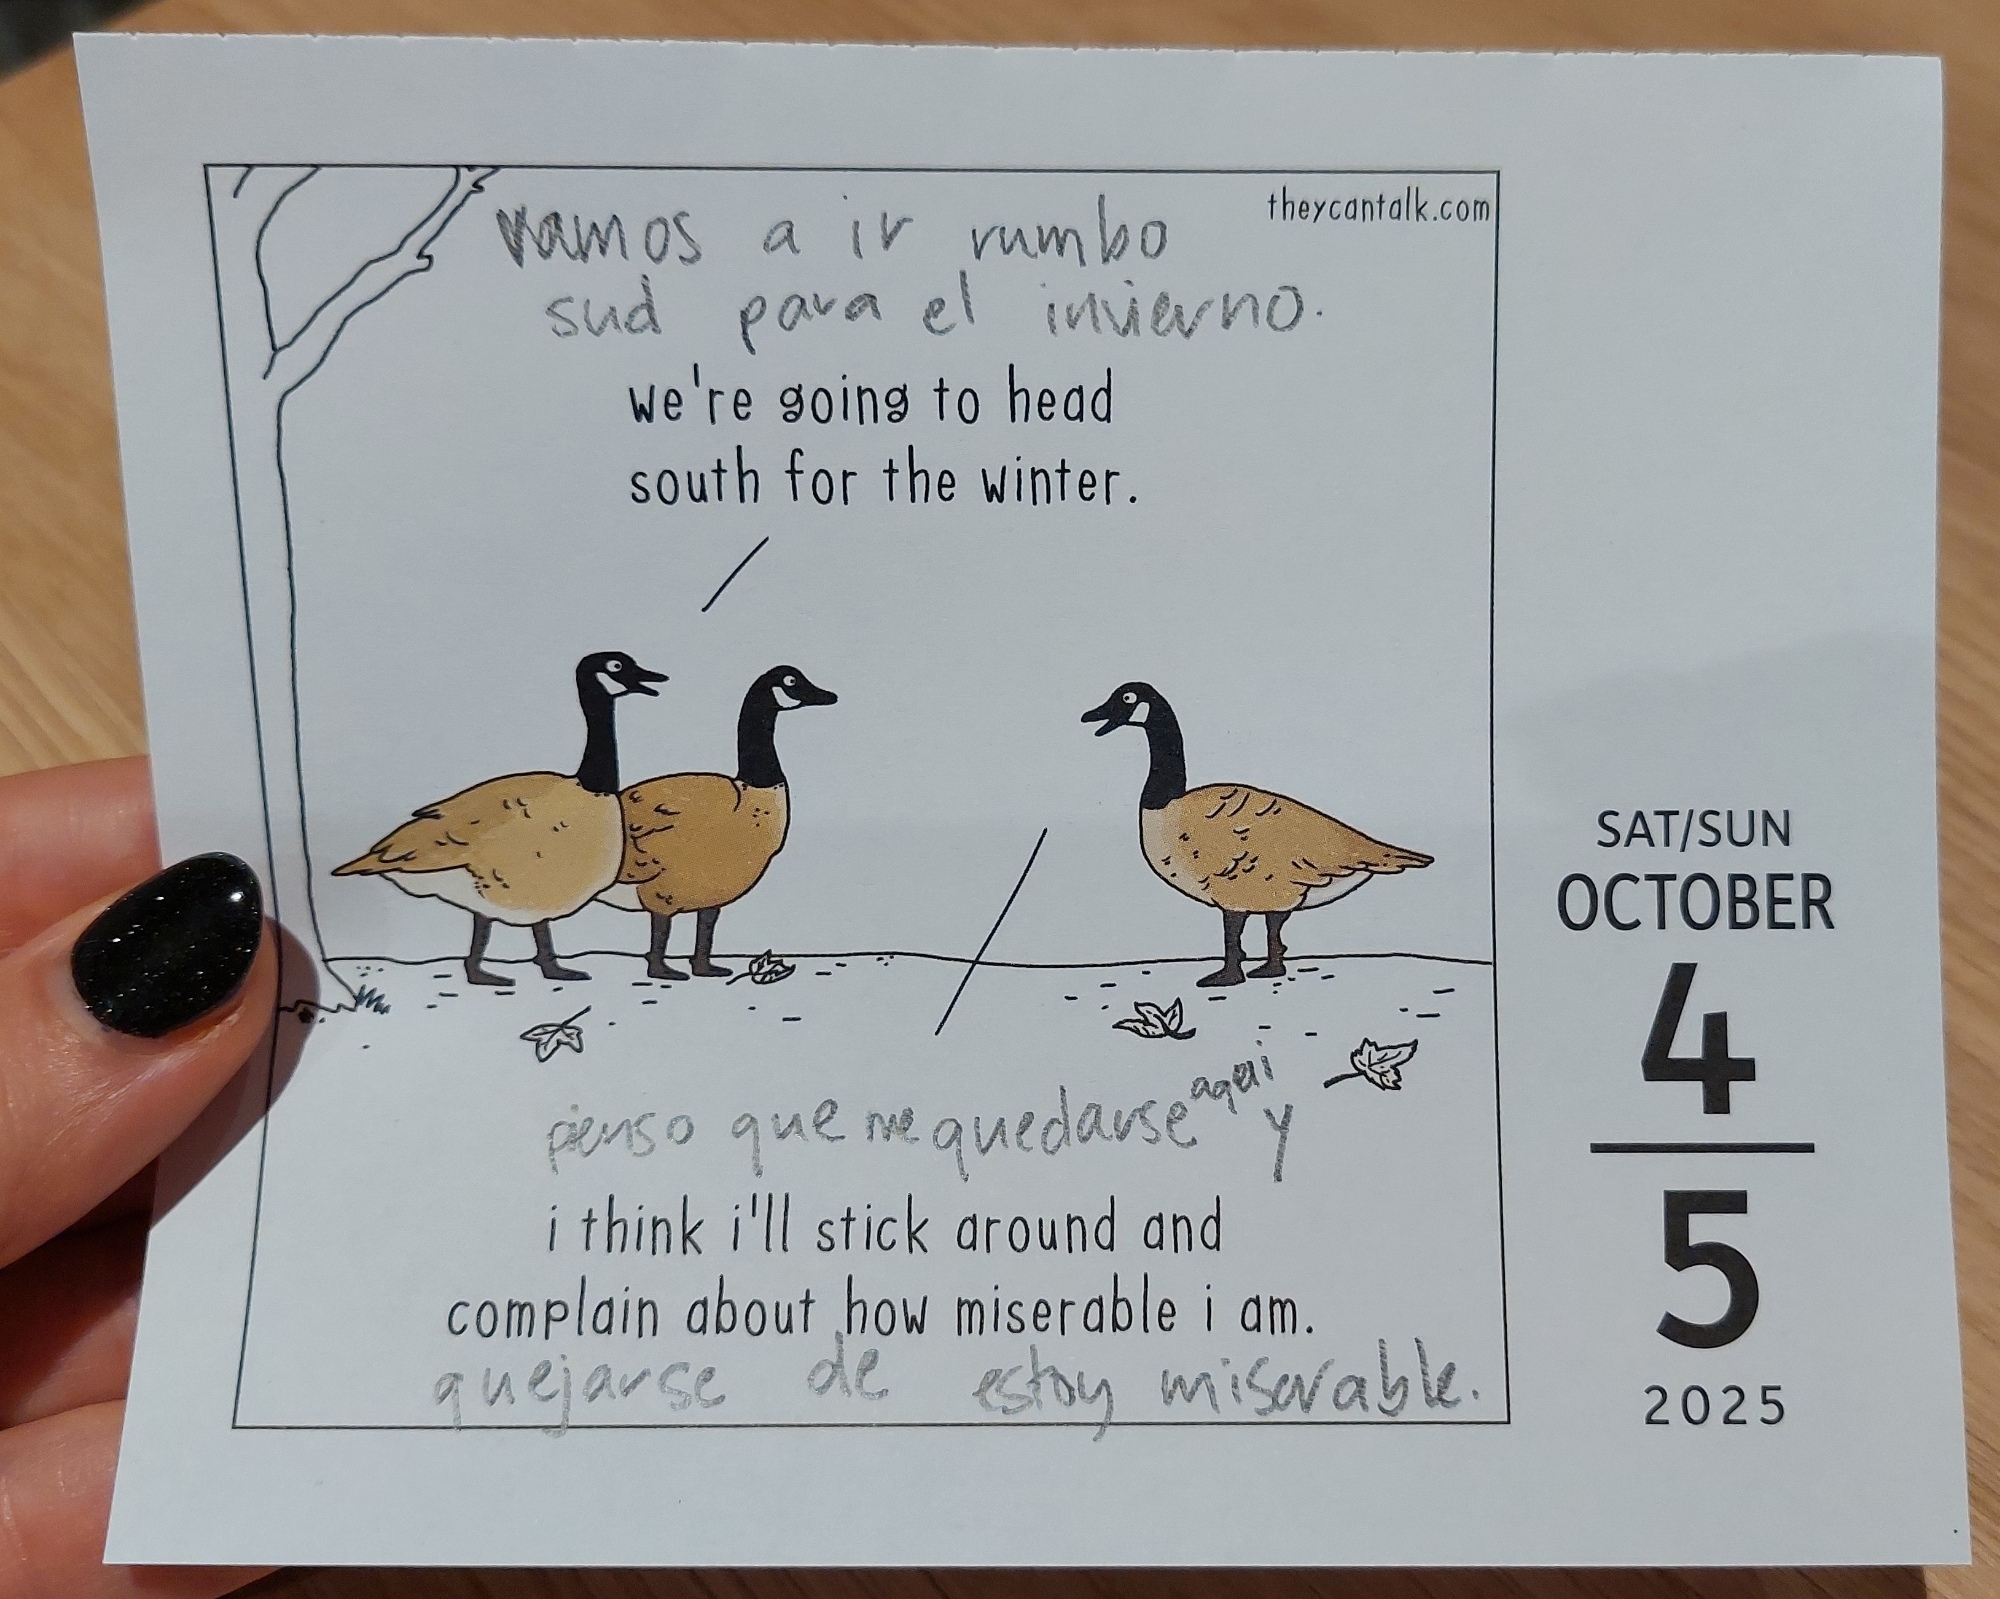 theycantalk.com
vamos a ir rumbo
sud para el invierno.
we're going to head
south for the winter.
aqui
pienso que me quedarse y
i think i'll stick around and
complain about how miserable i am.
quejarse de estoy miserable.
SAT/SUN
OCTOBER
4
5
2025